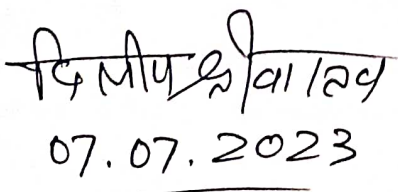 दिलीप श्रीवास्तव
07.07.2023